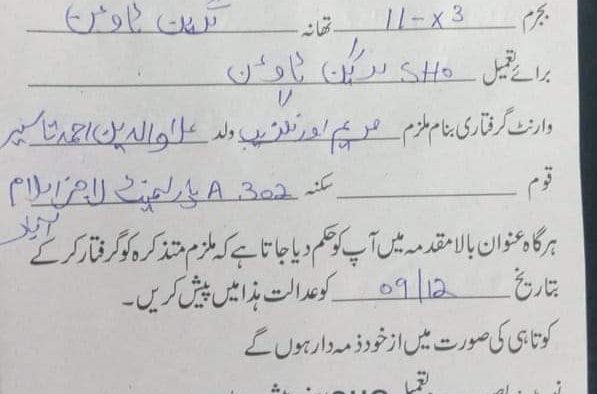 بجرم 11-X3 تھانہ گرین ٹاؤن
برائے تعمیل SHO گرین ٹاؤن
وارنٹ گرفتاری بنام ملزم مریم اورنگزیب ولد علاوالدین احمد تاسیر
قوم سکنہ A 302 پارلیمنٹ لاجز اسلام
آباد
ہر گاہ عنوان بالا مقدمہ میں آپ کو حکم دیا جاتا ہے کہ ملزم متذکرہ کو گرفتار کر کے
بتاریخ 09/12 کو عدالت ہذا میں پیش کریں۔
کوتاہی کی صورت میں از خود ذمہ دار ہوں گے